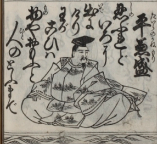 平兼盛
忍ふれと
いろに出に
けり
わか
こひは
物やおもふと
人のとふまて